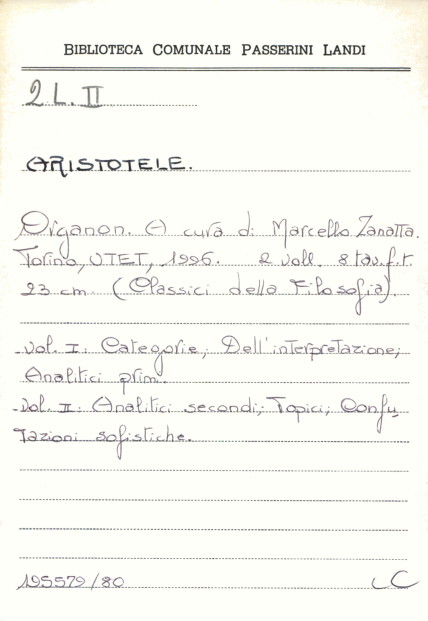 BIBLIOTECA COMUNALE PASSERINI LANDI
2L. II
ARISTOTELE.
Organon. A cura di Marcello Zanatta.
Torino, UTET, 1996. 2 voll. 8 tav.f.t.
23 cm. (Classici della Filosofia).
vol. I: Categorie; Dell'interpretazione;
Analitici primi.
vol. II: Analitici secondi; Topici; Confu-
tazioni sofistiche.
195579/80
LC